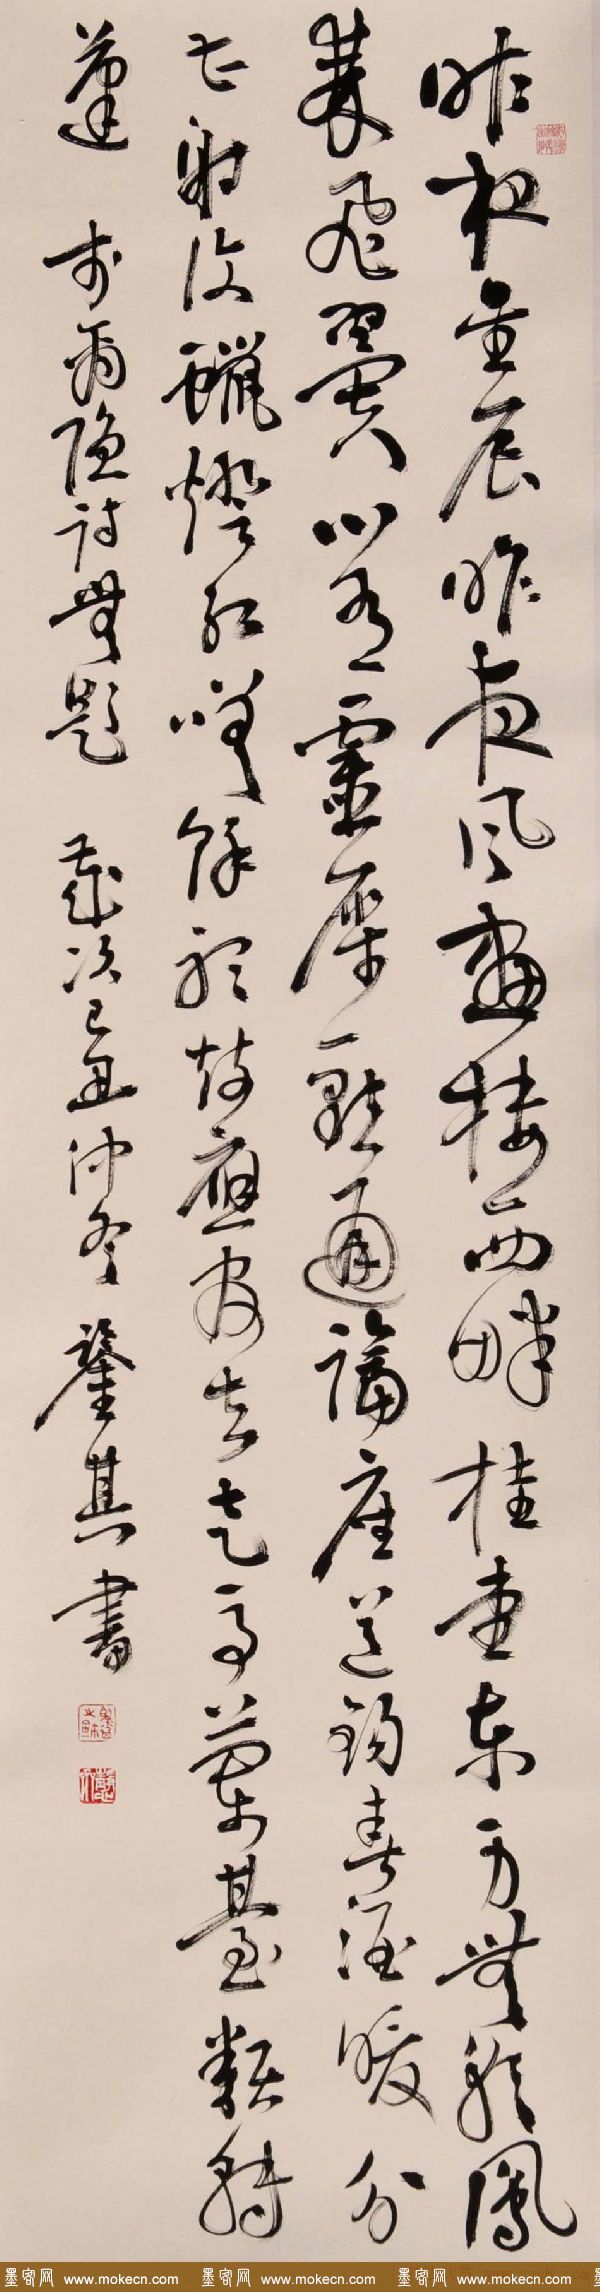 昨夜星辰昨夜風畫樓西畔桂堂東身無彩鳳
雙飛翼心有靈犀一點通隔座送鈎春酒暖分
曹射覆蠟燈紅嗟餘聽鼓應官去走馬蘭臺類轉
蓬 李商隱詩無題 歲次己丑仲冬 其書
墨客网 www.mokecn.com 墨客网 www.mokecn.com 墨客网 www.mokecn.com 墨客网 www.mokecn.com